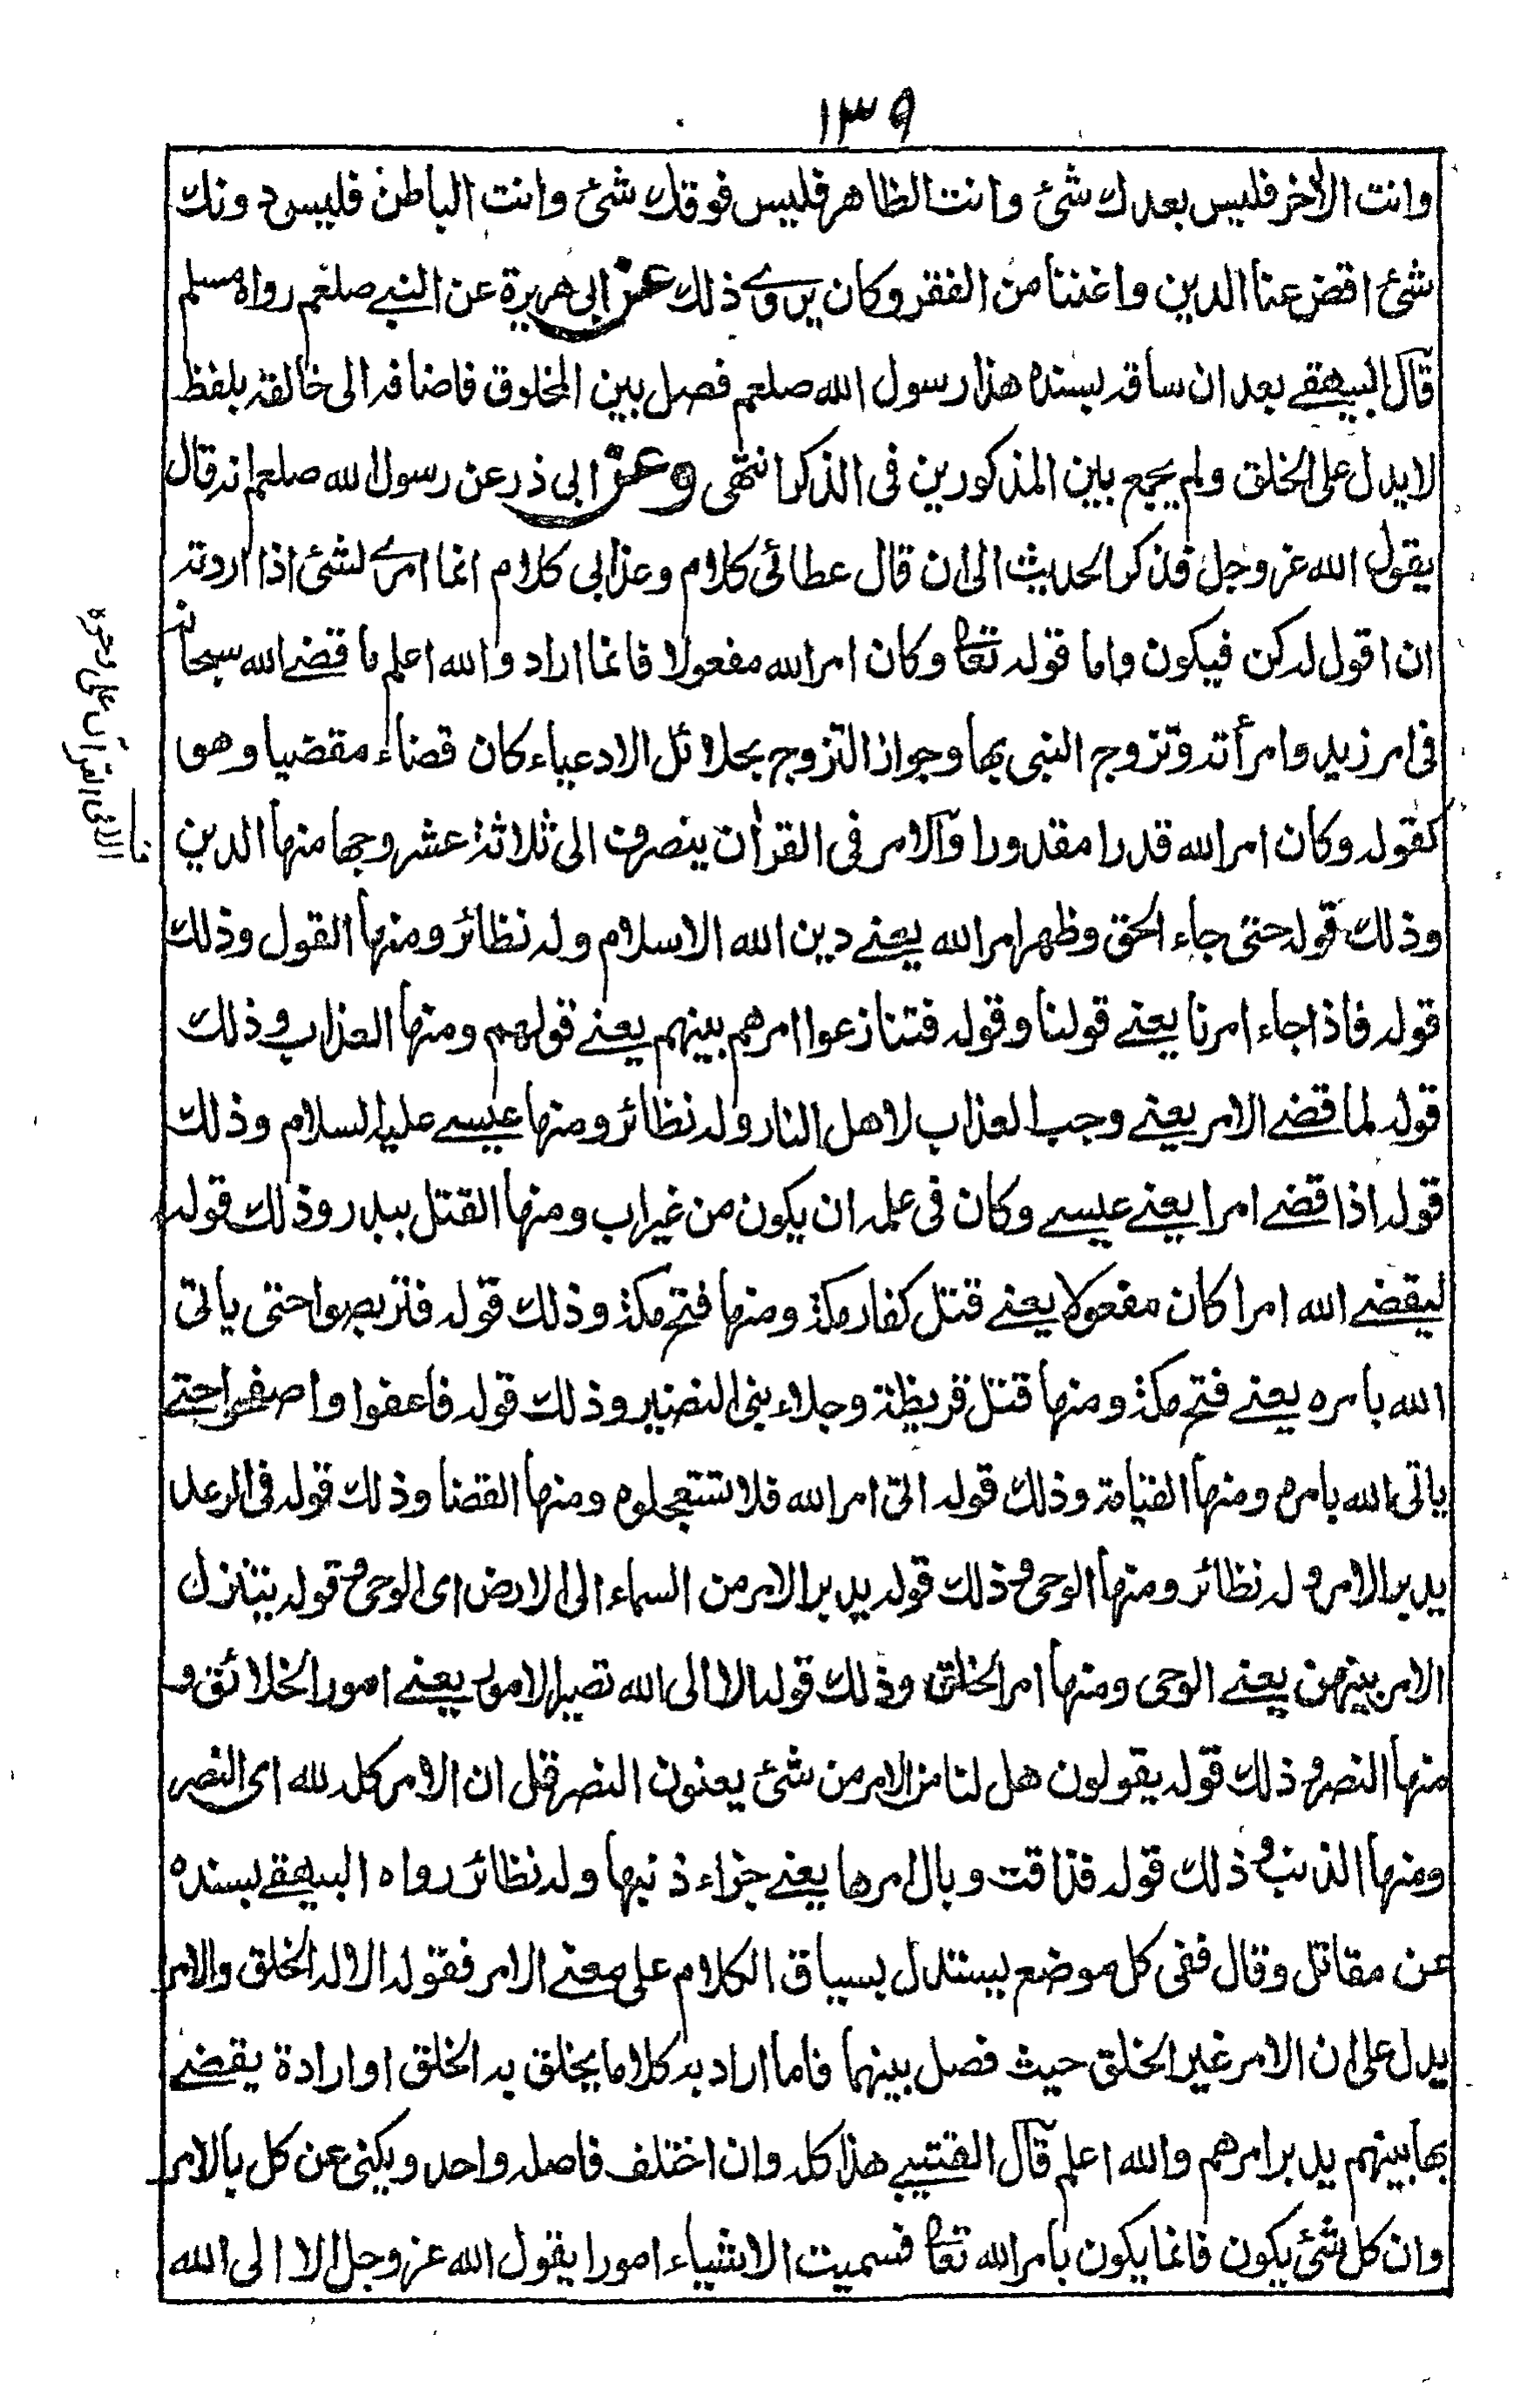 ١٣٩
وانت الأخر فليس بعدك شئ وانت الظاهر فليس فوقك شئ وانت الباطن فليس دونك
شئ اقض عنا الدين واغننا من الفقر وكان يروے ذلك عن ابى هريرة عن النبے صلعم رواه مسلم
قال البيهقے بعد ان ساقه بسنده هذا رسول الله صلعم فصل بين المخلوق فاضافه الى خالقه بلفظ
لا يدل على الخلق ولم يجمع بين المذكورين فى الذكر انتهى وعن ابى ذر عن رسول الله صلعم انه قال
يقول الله عز وجل فذكر الحديث الى ان قال عطائى كلام وعذابى كلام انما امرے لشئ اذا اردته
ان اقول له كن فيكون واما قوله تعا وكان امر الله مفعولا فانما اراد والله اعلم ما قضے الله سبحانه
فى امر زيد وامرأته وتزوج النبى بها وجواز التزوج بحلائل الادعياء كان قضاء مقضيا وهو
كقوله وكان امر الله قدرا مقدورا والامر فى القرأن ينصرف الى ثلاثة عشر وجها منها الدين
وذلك قوله حتى جاء الحق وظهر امر الله يعنے دين الله الاسلام وله نظائر ومنها القول وذلك
قوله فاذا جاء امرنا يعنے قولنا وقوله فتنازعوا امرهم بينهم يعنے قولهم ومنها العذاب وذلك
قوله لما قضے الامر يعنے وجب العذاب لاهل النار وله نظائر ومنها عيسے عليه السلام وذلك
قوله اذا قضے امرا يعنے عيسے وكان فى علمه ان يكون من غير اب ومنها القتل ببدر وذلك قوله
ليقضے الله امرا كان مفعولا يعنے قتل كفار مكة ومنها فتح مكة وذلك قوله فتربصوا حتى ياتى
الله بامره يعنے فتح مكة ومنها قتل قريظة وجلاء بنى النضير وذلك قوله فاعفوا واصفحوا حتے
ياتى الله بامره ومنها القيامة وذلك قوله اتى امر الله فلا تستعجلوه ومنها القضا وذلك قوله فى الرعد
يدبر الامر وله نظائر ومنها الوحى وذلك قوله يدبر الامر من السماء الى الارض اى الوحى وقوله يتنزل
الامر بينهن يعنے الوحى ومنها امر الخلق وذلك قوله الا الى الله تصير الامور يعنے امور الخلائق و
منها النصر وذلك قوله يقولون هل لنا من الامر من شئ يعنون النصر قل ان الامر كله لله اى النصر
ومنها الذنب وذلك قوله فذاقت وبال امرها يعنے جزاء ذنبها وله نظائر رواه البيهقے بسنده
عن مقاتل وقال ففى كل موضع يستدل بسياق الكلام على معنے الامر فقوله الا له الخلق والامر
يدل على ان الامر غير الخلق حيث فصل بينهما فاما اراد به كلاما يخلق به الخلق او ارادة يقضے
بها بينهم يدبر امرهم والله اعلم قال القتيبے هذا كله وان اختلف فاصله واحد ويكنى عن كل بالامر
وان كل شئ يكون فانما يكون بامر الله تعا فسميت الاشياء امورا يقول الله عز وجل الا الى الله